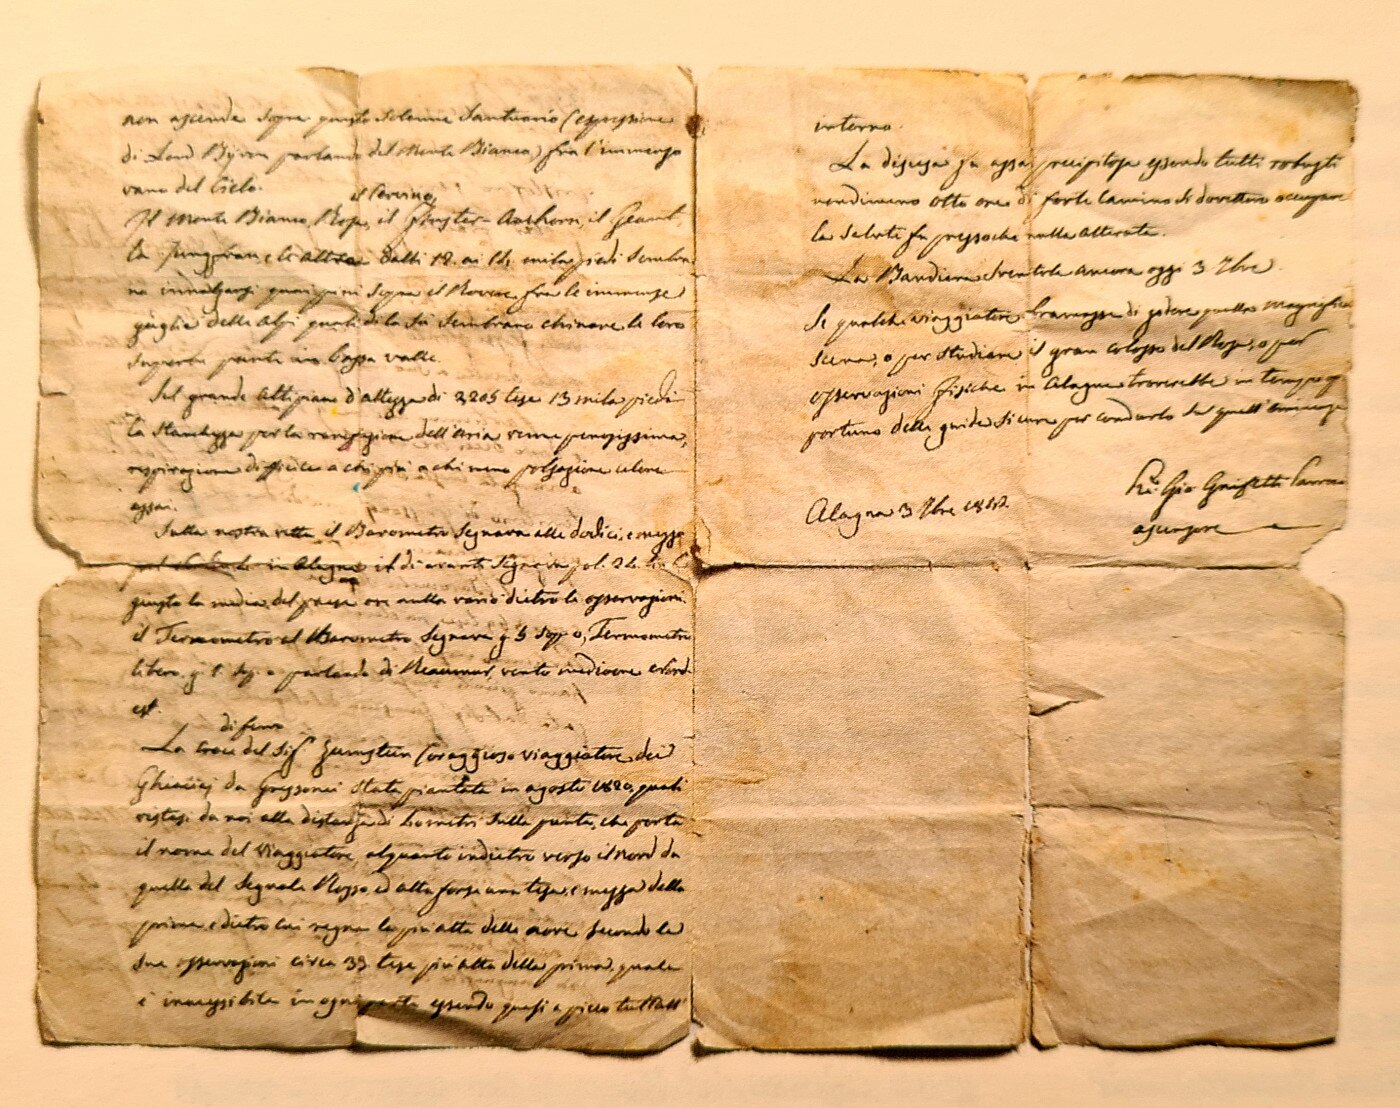 non ascende sopra questo Solenne Santuario (espressione
di Lord Byron parlando del Monte Bianco) fra l'immenso
vano del Cielo.
il Cervino,
Il Monte Bianco, Rosa, il Finster-Aarhorn, il
la Jungfrau, e le altre dalli 12. ai 14. mila piedi sembra
no innalzarsi quasi pini sopra il Rovere, fra le immense
guglie delle Alpi quali di la Sù Sembrano chinare le loro
superbe punte in bassa valle.
Sul grande Altipiano d'altezza di 2,205 tese 13 mila piedi
la Stanchezza per la rarefazione dell'aria venne penosissima,
respirazione difficile a chi più a chi meno polsazione celere
assai.
Sulla nostra vetta il Barometro Segnava alle dodici, e mezzo
in Alagna il dì avanti Segnava pol. 24.
giusta la media del paese ora nulla vario dietro le osservazioni.
il Termometro al Barometro Segnava g. 5 Sopra 0, Termometro
libero. g. 1. Sop. 0 parlando di Reaumur, vento mediocre e Nord
est.
di ferro
La Croce del Sig.r Zumstein Coraggioso viaggiatore dei
Ghiacciaj da Gressonei Stata piantata in agosto 1820, quali
vistasi da noi alla distanza di Lometri Sulla punta, che porta
il nome del Viaggiatore, alquanto indietro verso il Nord da
quella del Segnale Rosso ed alta forse una tesa, e mezza della
prima, e dietro lui regna la più alta delle nove Secondo le
Sue osservazioni circa 33 tese più alta della prima, quale
è inacessibile in ogni parte essendo quasi a picco tutt'all'
intorno.
La discesa fu assai precipitosa essendo tutti robusti
nondimeno otto ore di forte camino Si dovettero occupare
la Salute fu pressoché nulla alterata.
La Bandiera Sventola ancora oggi 3 7bre.
Se qualche viaggiatore bramasse di godere questa magnifica
Scena, o per studiare il gran colosso del Rosa, o per
osservazioni fisiche in Alagna troverebbe in tempo op
portuno delle guide Sicure per condurlo Su quell'eminenza
Gio Gnifetti Parroco
Alagna 3 7bre 1842.
ascensore